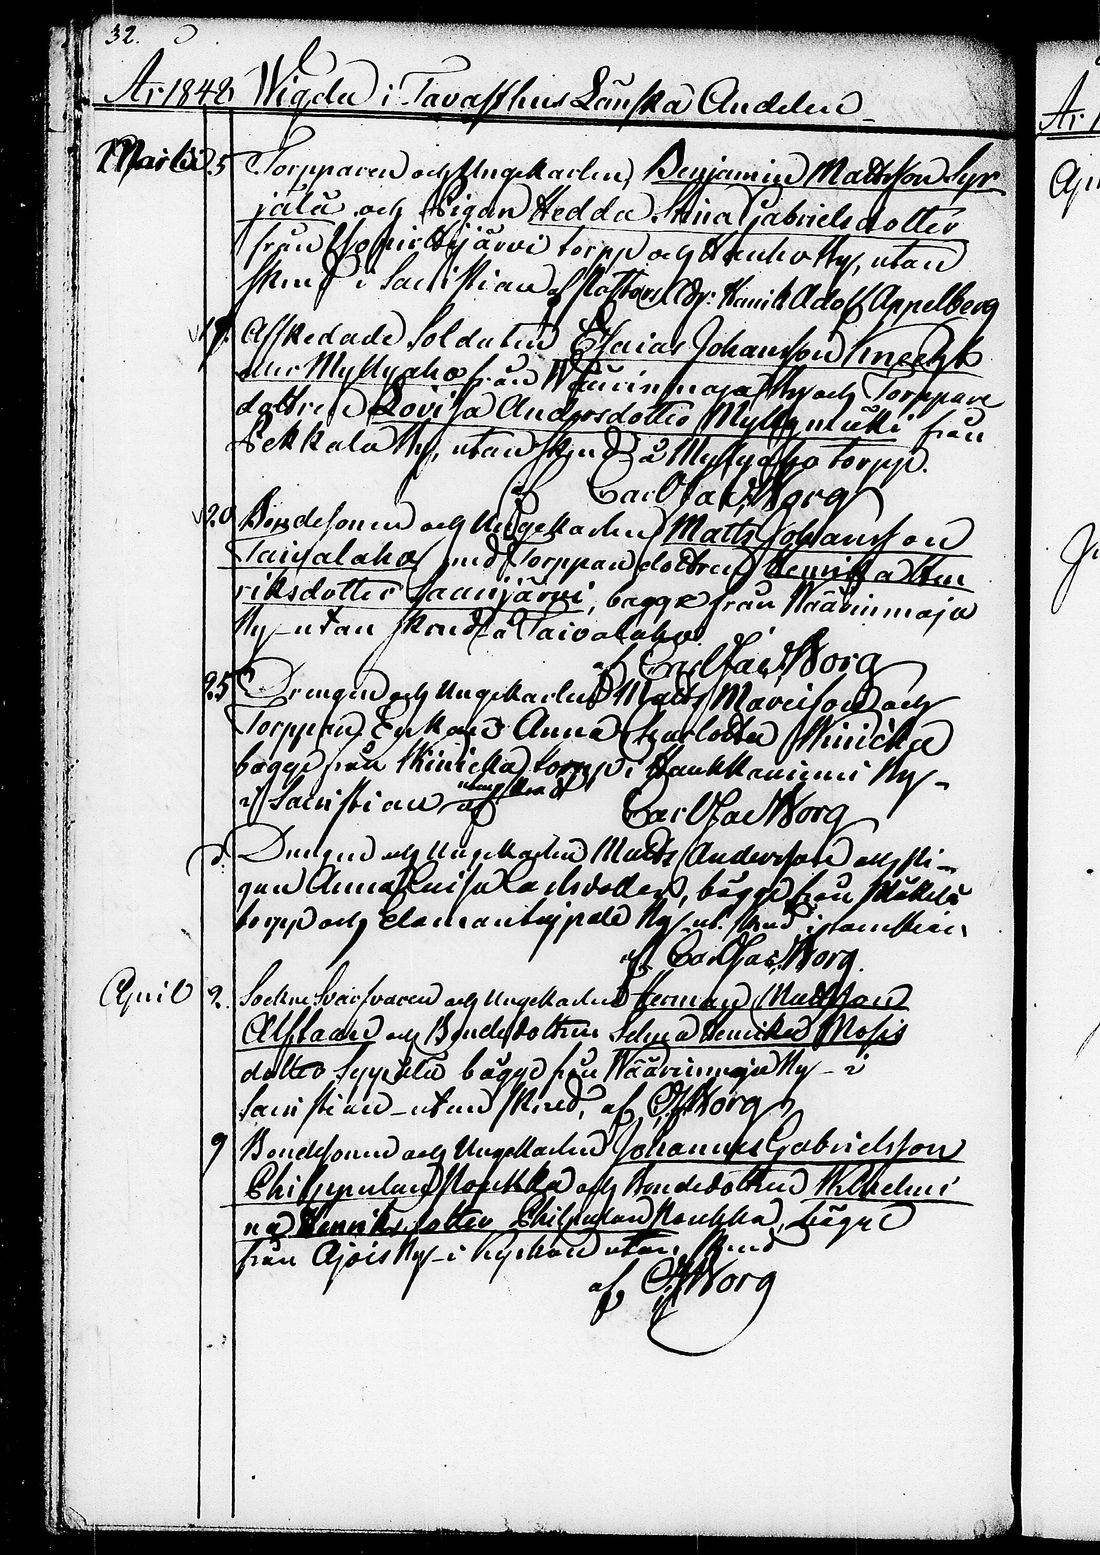 32.
År 1848. Wigda i Tavastehus Länska Andelen
Martii 5 Torpparen och Ungekarlen Benjamin Mattsson Syr
jälä och Pigan Hedda Stina Gabrielsdotter
från torpp och By, utan
skrud i Sacristian af Adolf Appelberg
19. Afskedade Soldaten Esaias Johansson Knecht
eller Myllyaho från Wäärinmaja By och Torppare
dottren Lovisa Andersdotter Myllymäki från
Pekkala By, utan skrud å Myllyaho torpp.
af Carl Jac. Borg
20 Bondesonen och Ungekarlen Matts Johansson
Taivalaho med Torppare dottren Henrika Hen
riksdotter Saarijärvi, bägge från Wäärinmaja
By utan skrud å Taivalaho
af Carl Jac. Borg
25 Drengen och Ungekarlen Matts och
Torppare Enkan Anna Charlotta
bägge från torpp i By
i Sacristian utan skrud af Carl Jac Borg
d. Drengen och Ungekarlen Matts Andersson och Pi-
gan Anna Lovisa Carlsdotter, bägge från Mäkelä
torpp och By ut. skrud i sacristian
af Carl Jac. Borg.
April 2. Sockne Svarfvaren och Ungekarlen Herman Mattsson
och Bondedottren Selma Henrika Mosis
dotter bägge från Wäärinmaja By i
Sacristian utan skrud, af CJ Borg
9 Bondesonen och Ungekarlen Johannes Gabrielsson
och Bondedottren Wilhelmi
na Henriksdotter bägge
från By i Kyrkan utan skrud
af CJ Borg
År 1
April